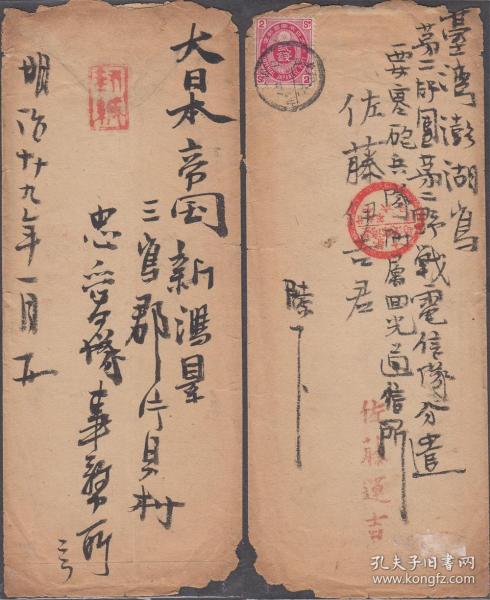 臺灣澎湖島
第二師團第二野戰電信隊分遣
要塞砲兵隊附屬回光通信所
佐藤伊吉君
陸下
佐藤運吉
大日本帝国新潟県
三島郡片貝村
忠愛隊事務所
明治廿九年一月五
孔夫子旧书网